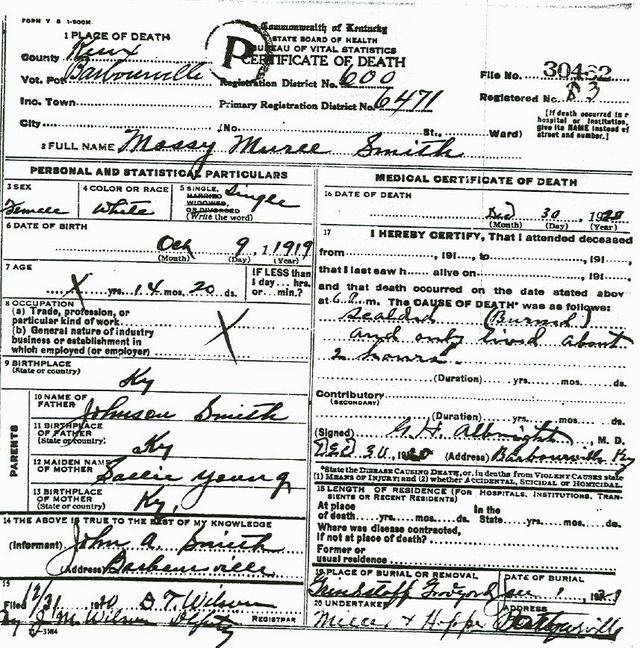 FORM V S 1-500M.
Commonwealth of Kentucky
STATE BOARD OF HEALTH
BUREAU OF VITAL STATISTICS
CERTIFICATE OF DEATH
P
1 PLACE OF DEATH
County Knox
Vot. Pct Barbourville
Registration District No. 600
File No. 30462
Inc. Town
Primary Registration District No. 6471
Registered No. 83
City (No. St., Ward)
[If death occurred in a hospital or institution, give its NAME instead of street and number.]
2 FULL NAME Mossy Muree Smith
PERSONAL AND STATISTICAL PARTICULARS
3 SEX
Female
4 COLOR OR RACE
White
5 SINGLE, MARRIED WIDOWED, OR DIVORCED (Write the word)
Single
6 DATE OF BIRTH
Oct 9, 1919
(Month) (Day) (Year)
7 AGE
X yrs. 14 mos. 20 ds.
IF LESS than 1 day... hrs. or... min.?
8 OCCUPATION
(a) Trade, profession, or particular kind of work
(b) General nature of industry business or establishment in which employed (or employer)
X
9 BIRTHPLACE
(State or country)
Ky
PARENTS
10 NAME OF FATHER
Johnson Smith
11 BIRTHPLACE OF FATHER
(State or country)
Ky
12 MAIDEN NAME OF MOTHER
Sallie Young
13 BIRTHPLACE OF MOTHER
(State or country)
Ky.
14 THE ABOVE IS TRUE TO THE BEST OF MY KNOWLEDGE
(Informant) John A. Smith
(Address) Barbourville
15
Filed 12/31 1920 B.T. Wilson
By J M Wilson Deputy REGISTRAR
11-3184
MEDICAL CERTIFICATE OF DEATH
16 DATE OF DEATH
Dec 30, 1920
(Month) (Day) (Year)
17 I HEREBY CERTIFY, That I attended deceased
from , 191 , to , 191 ,
that I last saw h alive on , 191 ,
and that death occurred on the date stated above
at 6 P. m. The CAUSE OF DEATH* was as follows:
scalded (Burned)
and only lived about
2 hours
(Duration) yrs. mos. ds.
Contributory
(SECONDARY)
(Duration) yrs. mos. ds.
(Signed) G. H. Albright M. D.
Dec 30, 1920 (Address) Barbourville Ky
*State the DISEASE CAUSING DEATH, or, in deaths from VIOLENT CAUSES state (1) MEANS OF INJURY; and (2) whether ACCIDENTAL, SUICIDAL or HOMICIDAL
18 LENGTH OF RESIDENCE (FOR HOSPITALS, INSTITUTIONS, TRANSIENTS OR RECENT RESIDENTS)
At place of death yrs. mos. ds. In the State yrs. mos. ds.
Where was disease contracted, if not at place of death?
Former or usual residence
19 PLACE OF BURIAL OR REMOVAL
DATE OF BURIAL
20 UNDERTAKER
Miller & Hopper
ADDRESS